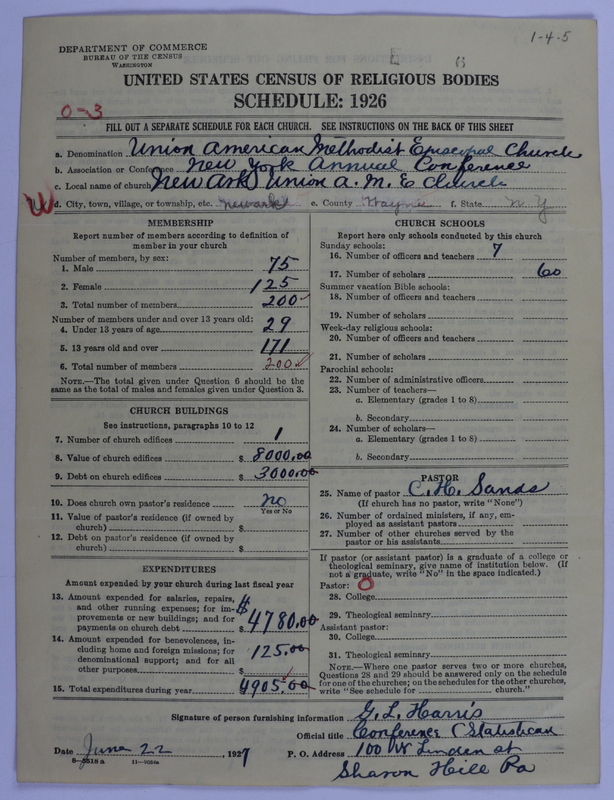 1-4-5
DEPARTMENT OF COMMERCE
BUREAU OF THE CENSUS
WASHINGTON
UNITED STATES CENSUS OF RELIGIOUS BODIES
SCHEDULE: 1926
0-3
FILL OUT A SEPARATE SCHEDULE FOR EACH CHURCH. SEE INSTRUCTIONS ON THE BACK OF THIS SHEET
a. Denomination Union American Methodist Episcopal Church
b. Association or Conference New York Annual Conference
c. Local name of church (Newark) Union A. M. E Church
d. City, town, village, or township, etc. Newark e. County Wayne f. State N Y
MEMBERSHIP
Report number of members according to definition of
member in your church
Number of members, by sex:
1. Male 75
2. Female 125
3. Total number of members 200
Number of members under and over 13 years old:
4. Under 13 years of age 29
5. 13 years old and over 171
6. Total number of members 200
NOTE.—The total given under Question 6 should be the
same as the total of males and females given under Question 3.
CHURCH BUILDINGS
See instructions, paragraphs 10 to 12
7. Number of church edifices 1
8. Value of church edifices $ 8000.00
9. Debt on church edifices $ 3000.00
10. Does church own pastor's residence no
Yes or No
11. Value of pastor's residence (if owned by
church) $
12. Debt on pastor's residence (if owned by
church) $
EXPENDITURES
Amount expended by your church during last fiscal year
13. Amount expended for salaries, repairs,
and other running expenses; for im-
provements or new buildings; and for
payments on church debt $ 4780.00
14. Amount expended for benevolences, in-
cluding home and foreign missions; for
denominational support; and for all
other purposes $ 125.00
15. Total expenditures during year 4905.00
CHURCH SCHOOLS
Report here only schools conducted by this church
Sunday schools:
16. Number of officers and teachers 7
17. Number of scholars 60
Summer vacation Bible schools:
18. Number of officers and teachers
19. Number of scholars
Week-day religious schools:
20. Number of officers and teachers
21. Number of scholars
Parochial schools:
22. Number of administrative officers
23. Number of teachers—
a. Elementary (grades 1 to 8)
b. Secondary
24. Number of scholars—
a. Elementary (grades 1 to 8)
b. Secondary
PASTOR
25. Name of pastor C. H. Sands
(If church has no pastor, write "None")
26. Number of ordained ministers, if any, em-
ployed as assistant pastors
27. Number of other churches served by the
pastor or his assistants
If pastor (or assistant pastor) is a graduate of a college or
theological seminary, give name of institution below. (If
not a graduate, write "No" in the space indicated.)
Pastor: 0
28. College
29. Theological seminary
Assistant pastor:
30. College
31. Theological seminary
NOTE.—Where one pastor serves two or more churches,
Questions 28 and 29 should be answered only on the schedule
for one of the churches; on the schedules for the other churches,
write "See schedule for church."
Signature of person furnishing information G. L. Harris
Official title Conference Statistican
Date June 22, 1927 P. O. Address 100 W Linden at
8—5518 a 11—9054a
Sharon Hill Pa